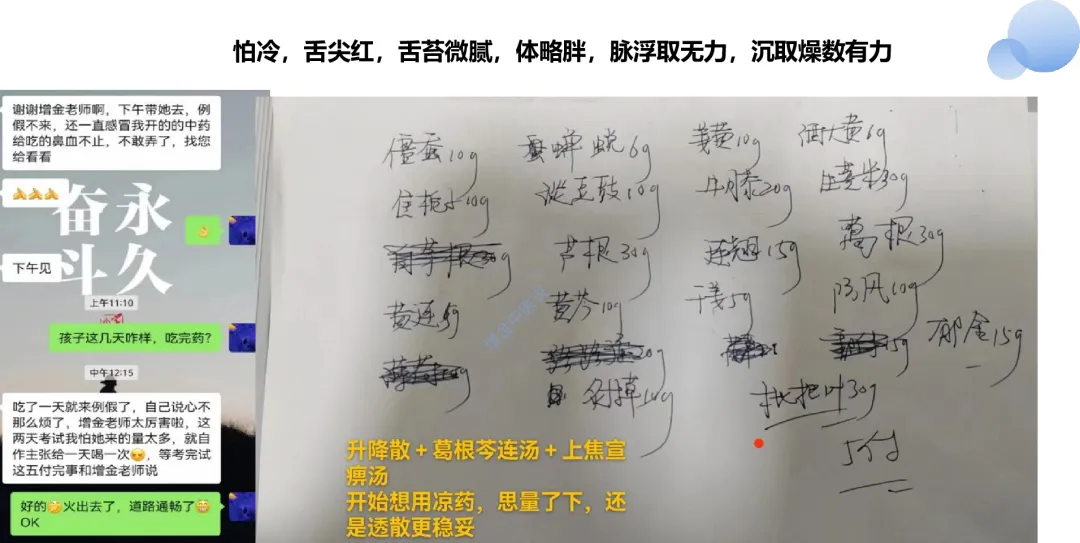 怕冷，舌尖红，舌苔微腻，体略胖，脉浮取无力，沉取燥数有力
谢谢增金老师啊，下午带她去，例
假不来，还一直感冒我开的的中药
给吃的鼻血不止，不敢弄了，找您
给看看
奋永
斗久
下午见
上午11:10
孩子这几天咋样，吃完药？
中午12:15
吃了一天就来例假了，自己说心不
那么烦了，增金老师太厉害啦，这
两天考试我怕她来的量太多，就自
作主张给一天喝一次，等考完试
这五付完事和增金老师说
好的火出去了，道路通畅了
OK
僵蚕10g 蝉蜕6g 姜黄10g 酒大黄6g
焦栀子10g 淡豆豉10g 牛膝20g 30g
芦根30g 连翘15g 葛根30g
黄连6g 黄芩10g 干姜5g 防风10g
郁金15g
射干10g 枇杷叶30g
5付
升降散+葛根芩连汤+上焦宣
痹汤
开始想用凉药，思量了下，还
是透散更稳妥